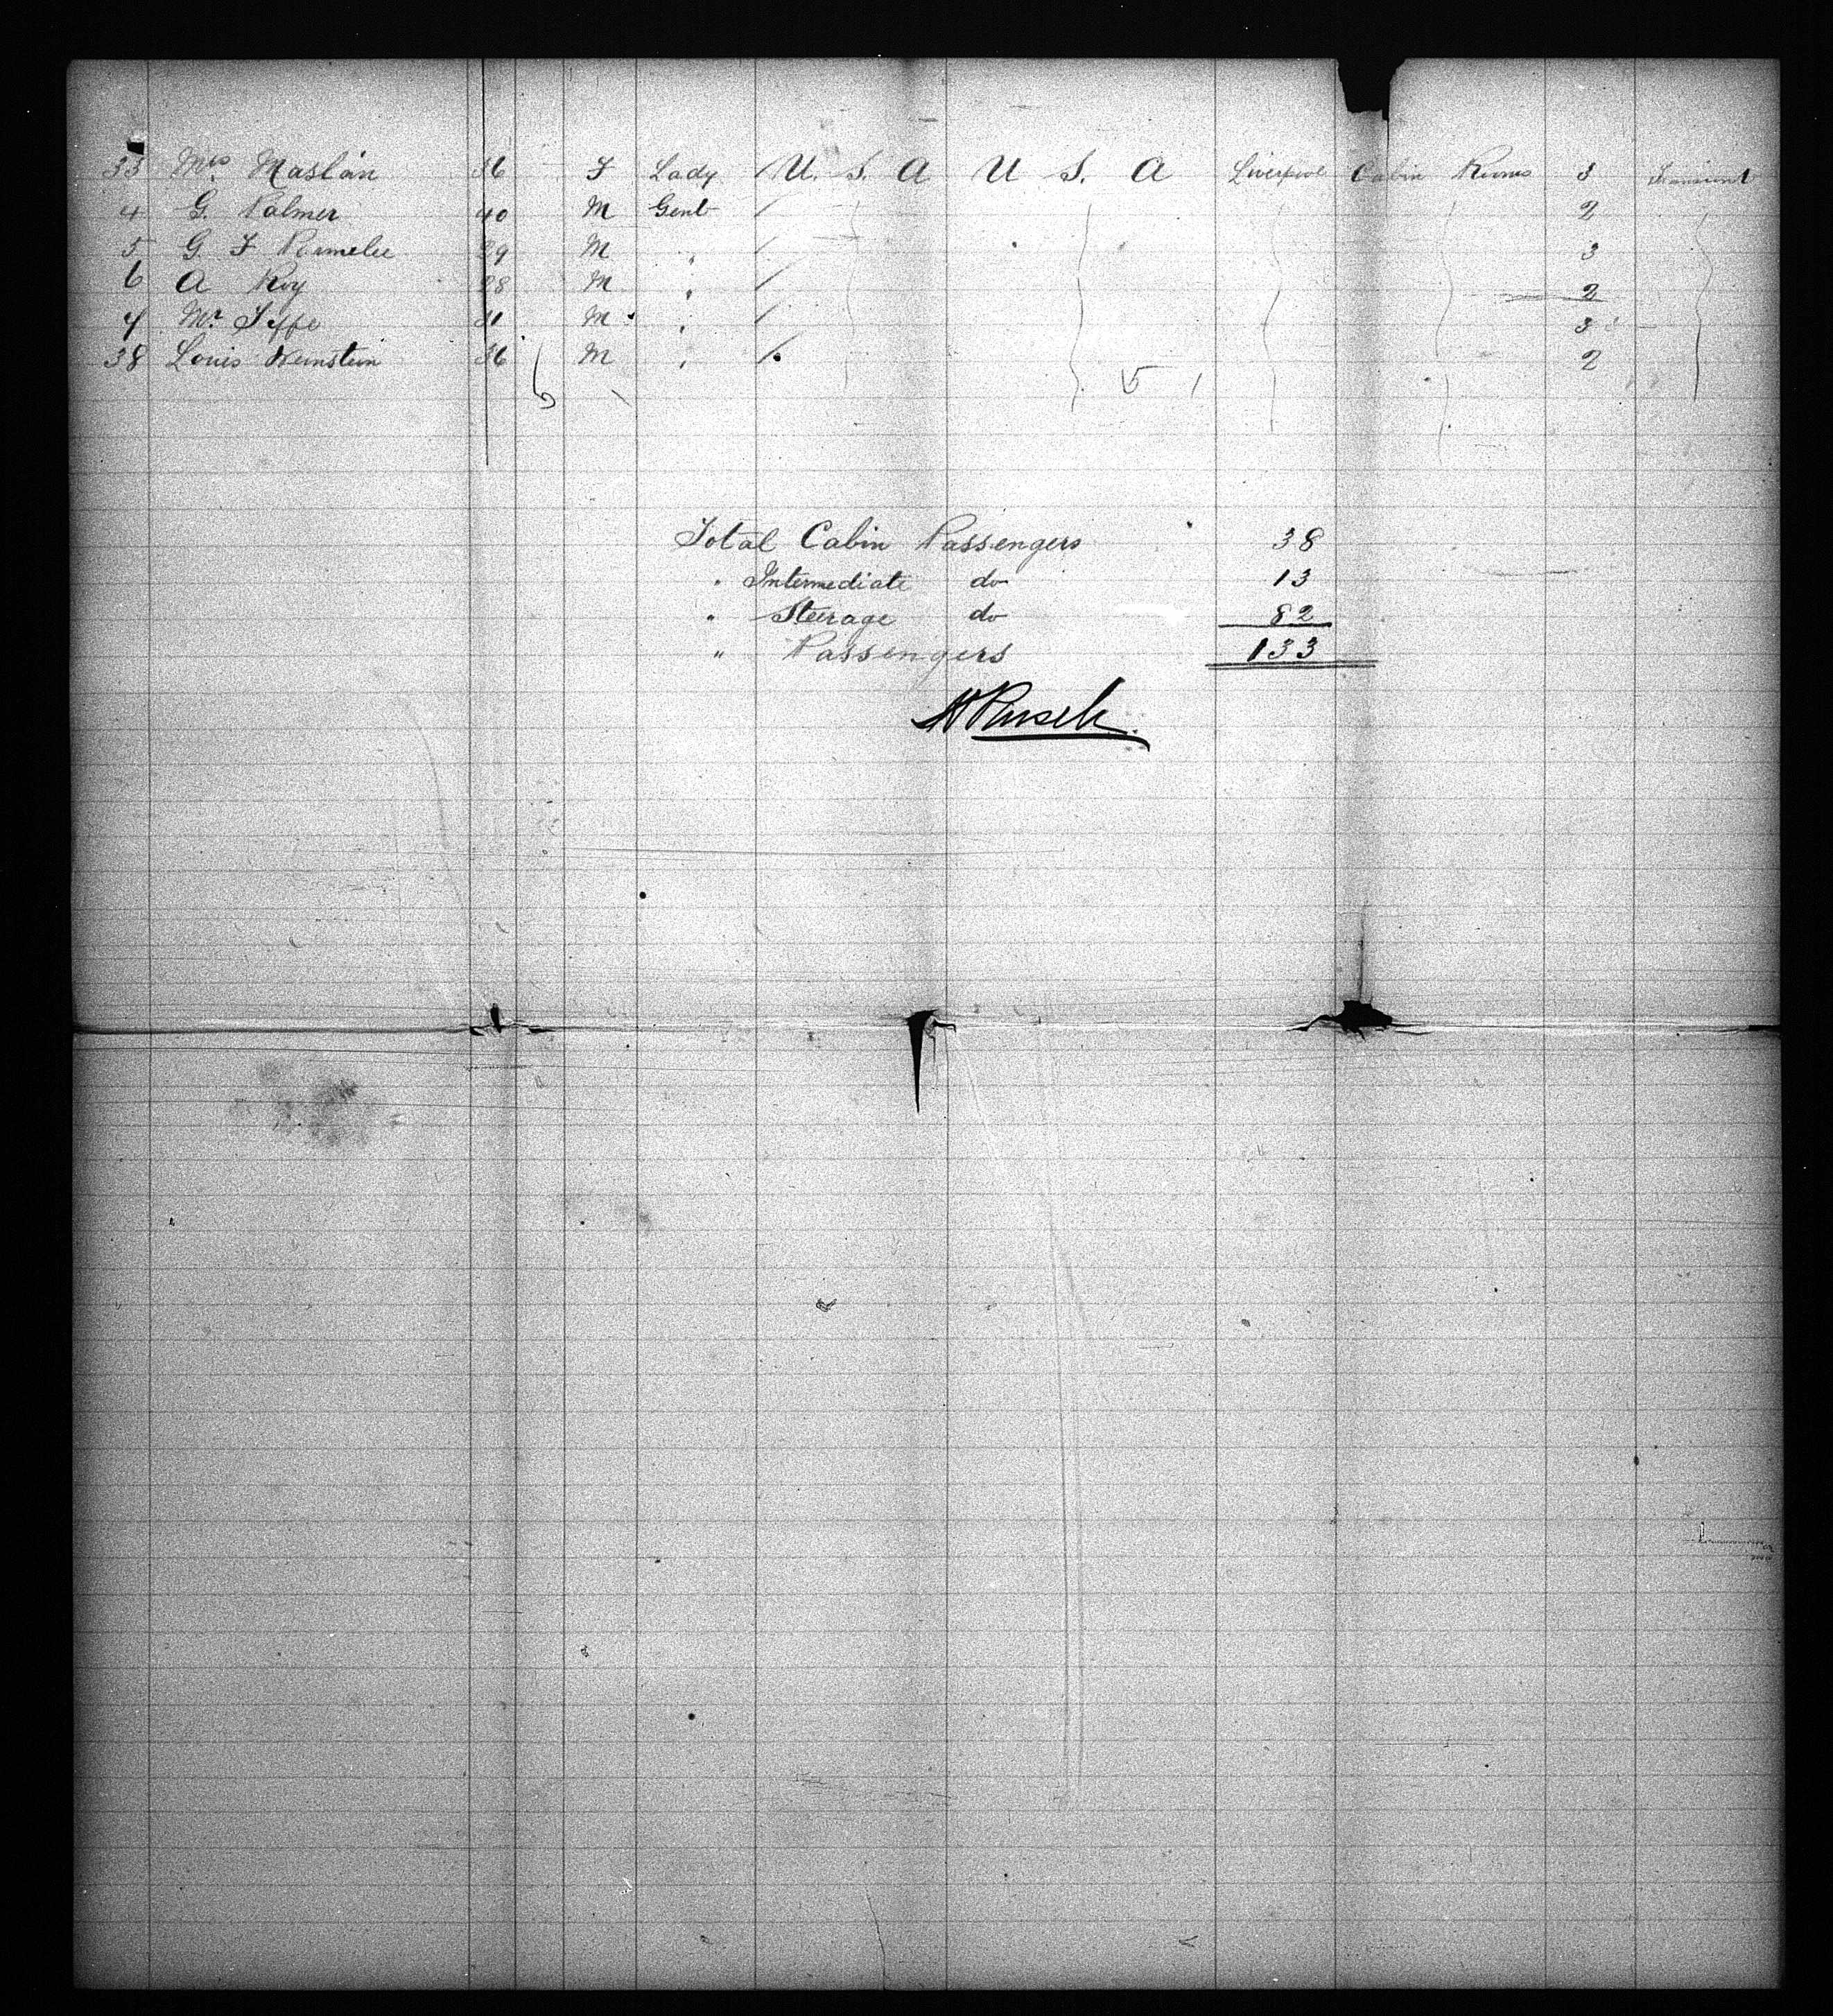 33 Mrs. Maslan 36 F Lady U. S. A U S. A Liverpool Cabin Rooms 3 Transient
4 G. Palmer 40 M Gent / 2
5 G. F 29 M " / 3
6 A Roy 28 M " / 2
7 Mr. 31 M " / 3
38 Louis 36 M " / 2
6 5 1
Total Cabin Passengers 38
" Intermediate do 13
" Steerage do 82
" Passengers 133